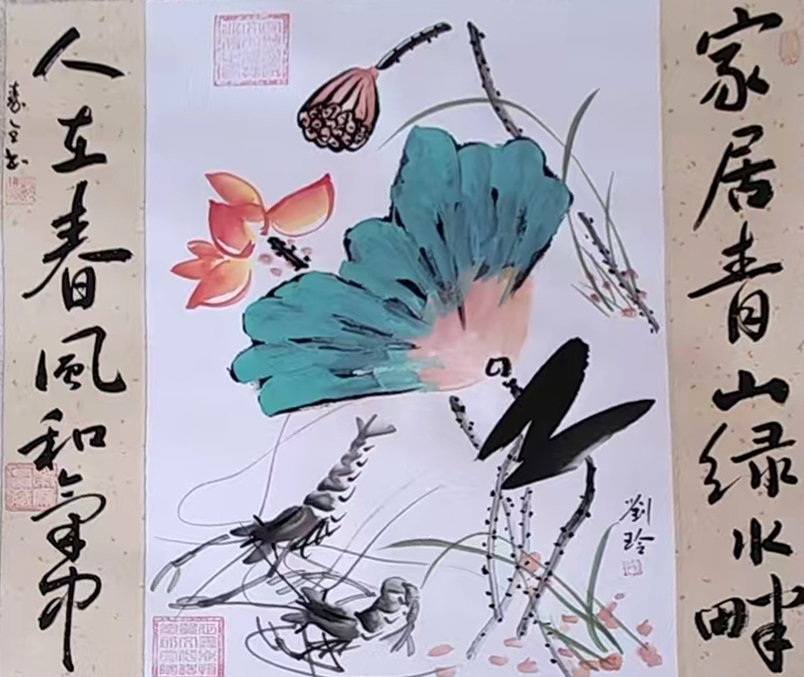 家居青山绿水畔
人在春風和氣中
劉玲